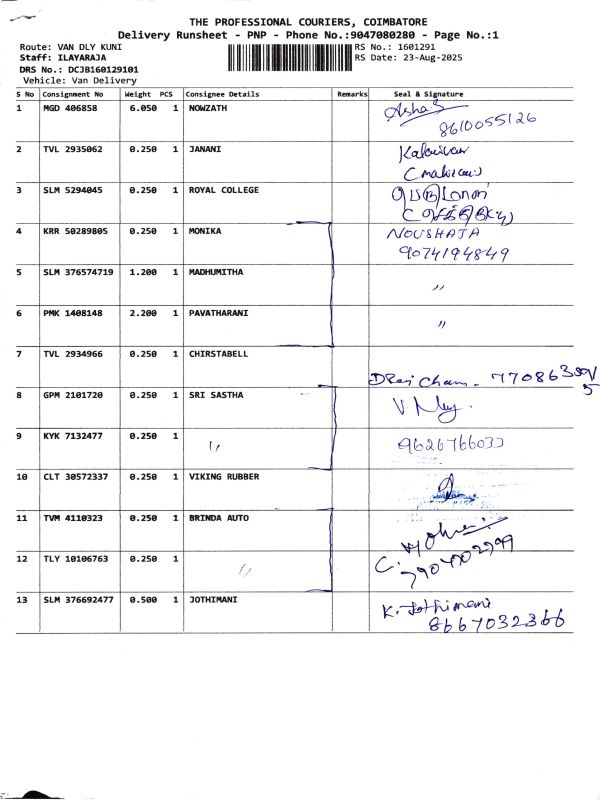 THE PROFESSIONAL COURIERS, COIMBATORE
Delivery Runsheet - PNP - Phone No.:9047080280 - Page No.:1
Route: VAN DLY KUNI RS No.: 1601291
Staff: ILAYARAJA RS Date: 23-Aug-2025
DRS No.: DCJB160129101
Vehicle: Van Delivery
S No Consignment No Weight PCS Consignee Details Remarks Seal & Signature
1 MGD 406858 6.050 1 NOWZATH Asha.S
8610055126
2 TVL 2935062 0.250 1 JANANI
3 SLM 5294045 0.250 1 ROYAL COLLEGE
4 KRR 50289805 0.250 1 MONIKA NOUSHAJA
9074194849
5 SLM 376574719 1.200 1 MADHUMITHA "
6 PMK 1408148 2.200 1 PAVATHARANI "
7 TVL 2934966 0.250 1 CHIRSTABELL
8 GPM 2101720 0.250 1 SRI SASTHA
9 KYK 7132477 0.250 1 "
10 CLT 30572337 0.250 1 VIKING RUBBER
11 TVM 4110323 0.250 1 BRINDA AUTO
12 TLY 10106763 0.250 1 "
13 SLM 376692477 0.500 1 JOTHIMANI K. Jothimani
8667032366